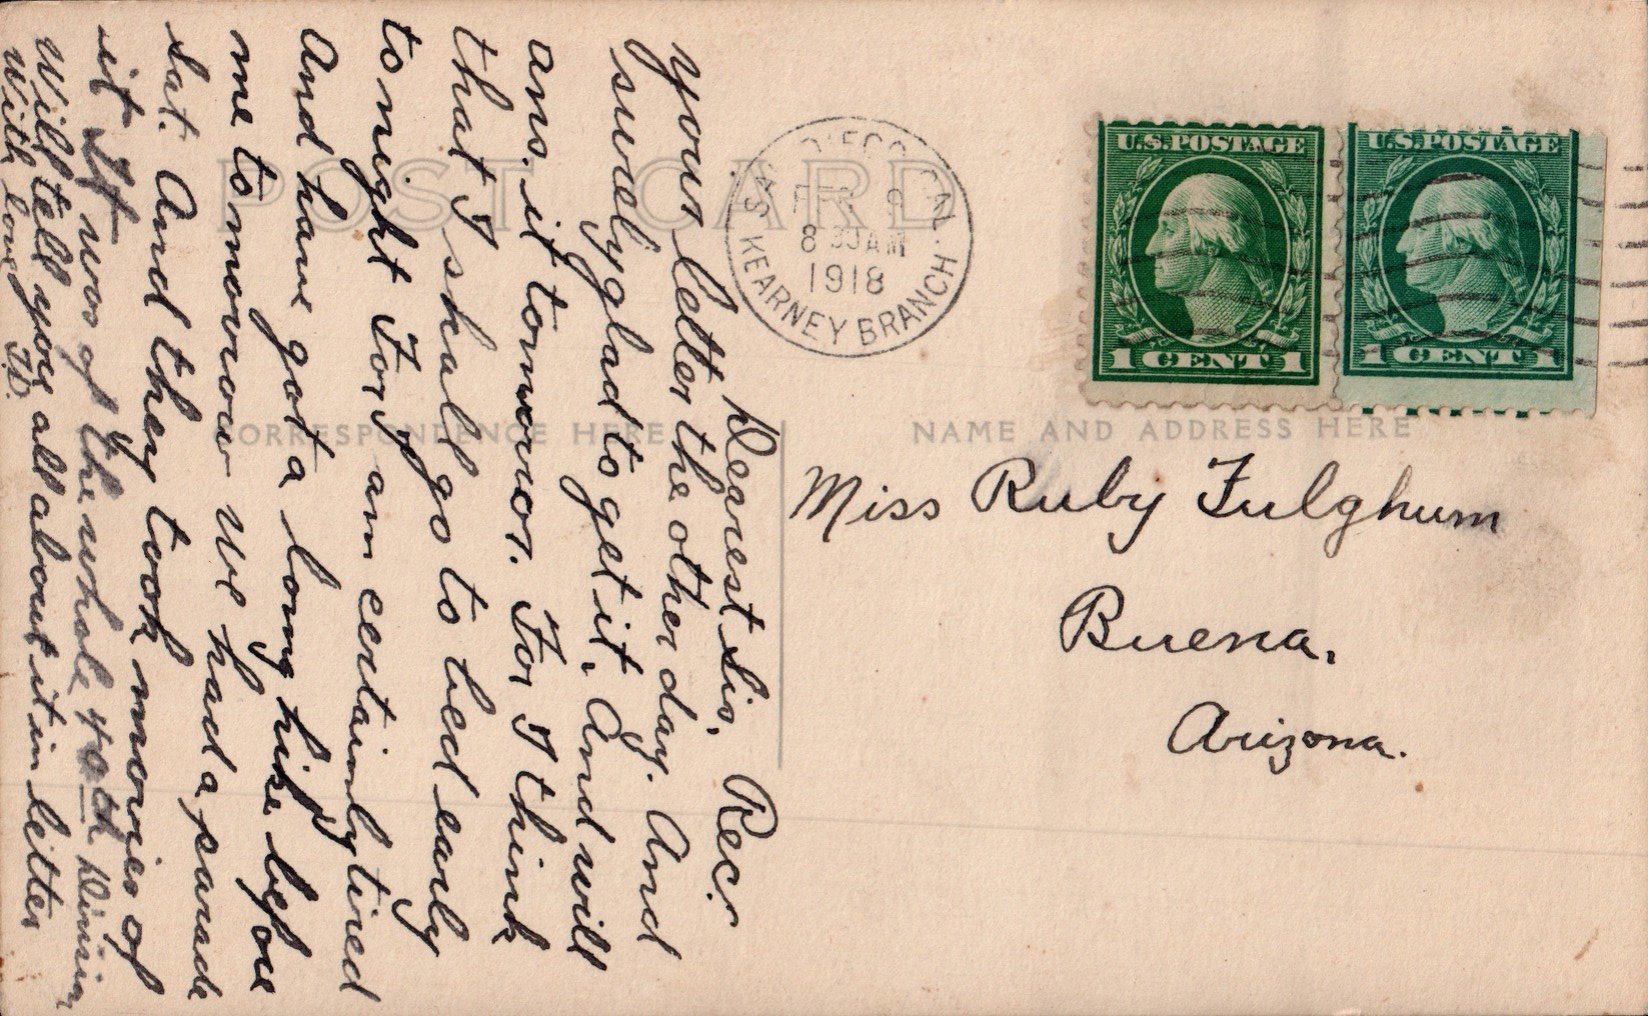 POST CARD
CORRESPONDENCE HERE
NAME AND ADDRESS HERE
U.S. POSTAGE
1 CENT 1
U.S. POSTAGE
1 CENT 1
DIEGO, CAL.
FEB
8 30 AM
1918
KEARNEY BRANCH
Dearest Sis, Rec.
your letter the other day. And
surely glad to get it, And will
ans. it tomorror. For I think
that I shall go to bed early
tonight For I am certainly tired
And have got a long hike before
me tomorrow We had a parade
Sat. And they took movies of
it It was of the whole 40th Division
Will tell you all about it in letter
With love J.D.
Miss Ruby Fulghum
Buena,
Arizona.